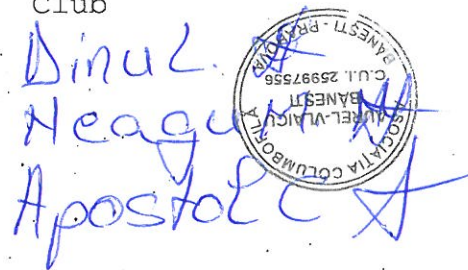 Club
Dinu L.
Neagu
Apostol C
ASOCIATIA COLUMBOFILA
AUREL-VLAICU
BANESTI
C.U.I. 25997556
BANESTI - PRAHOVA